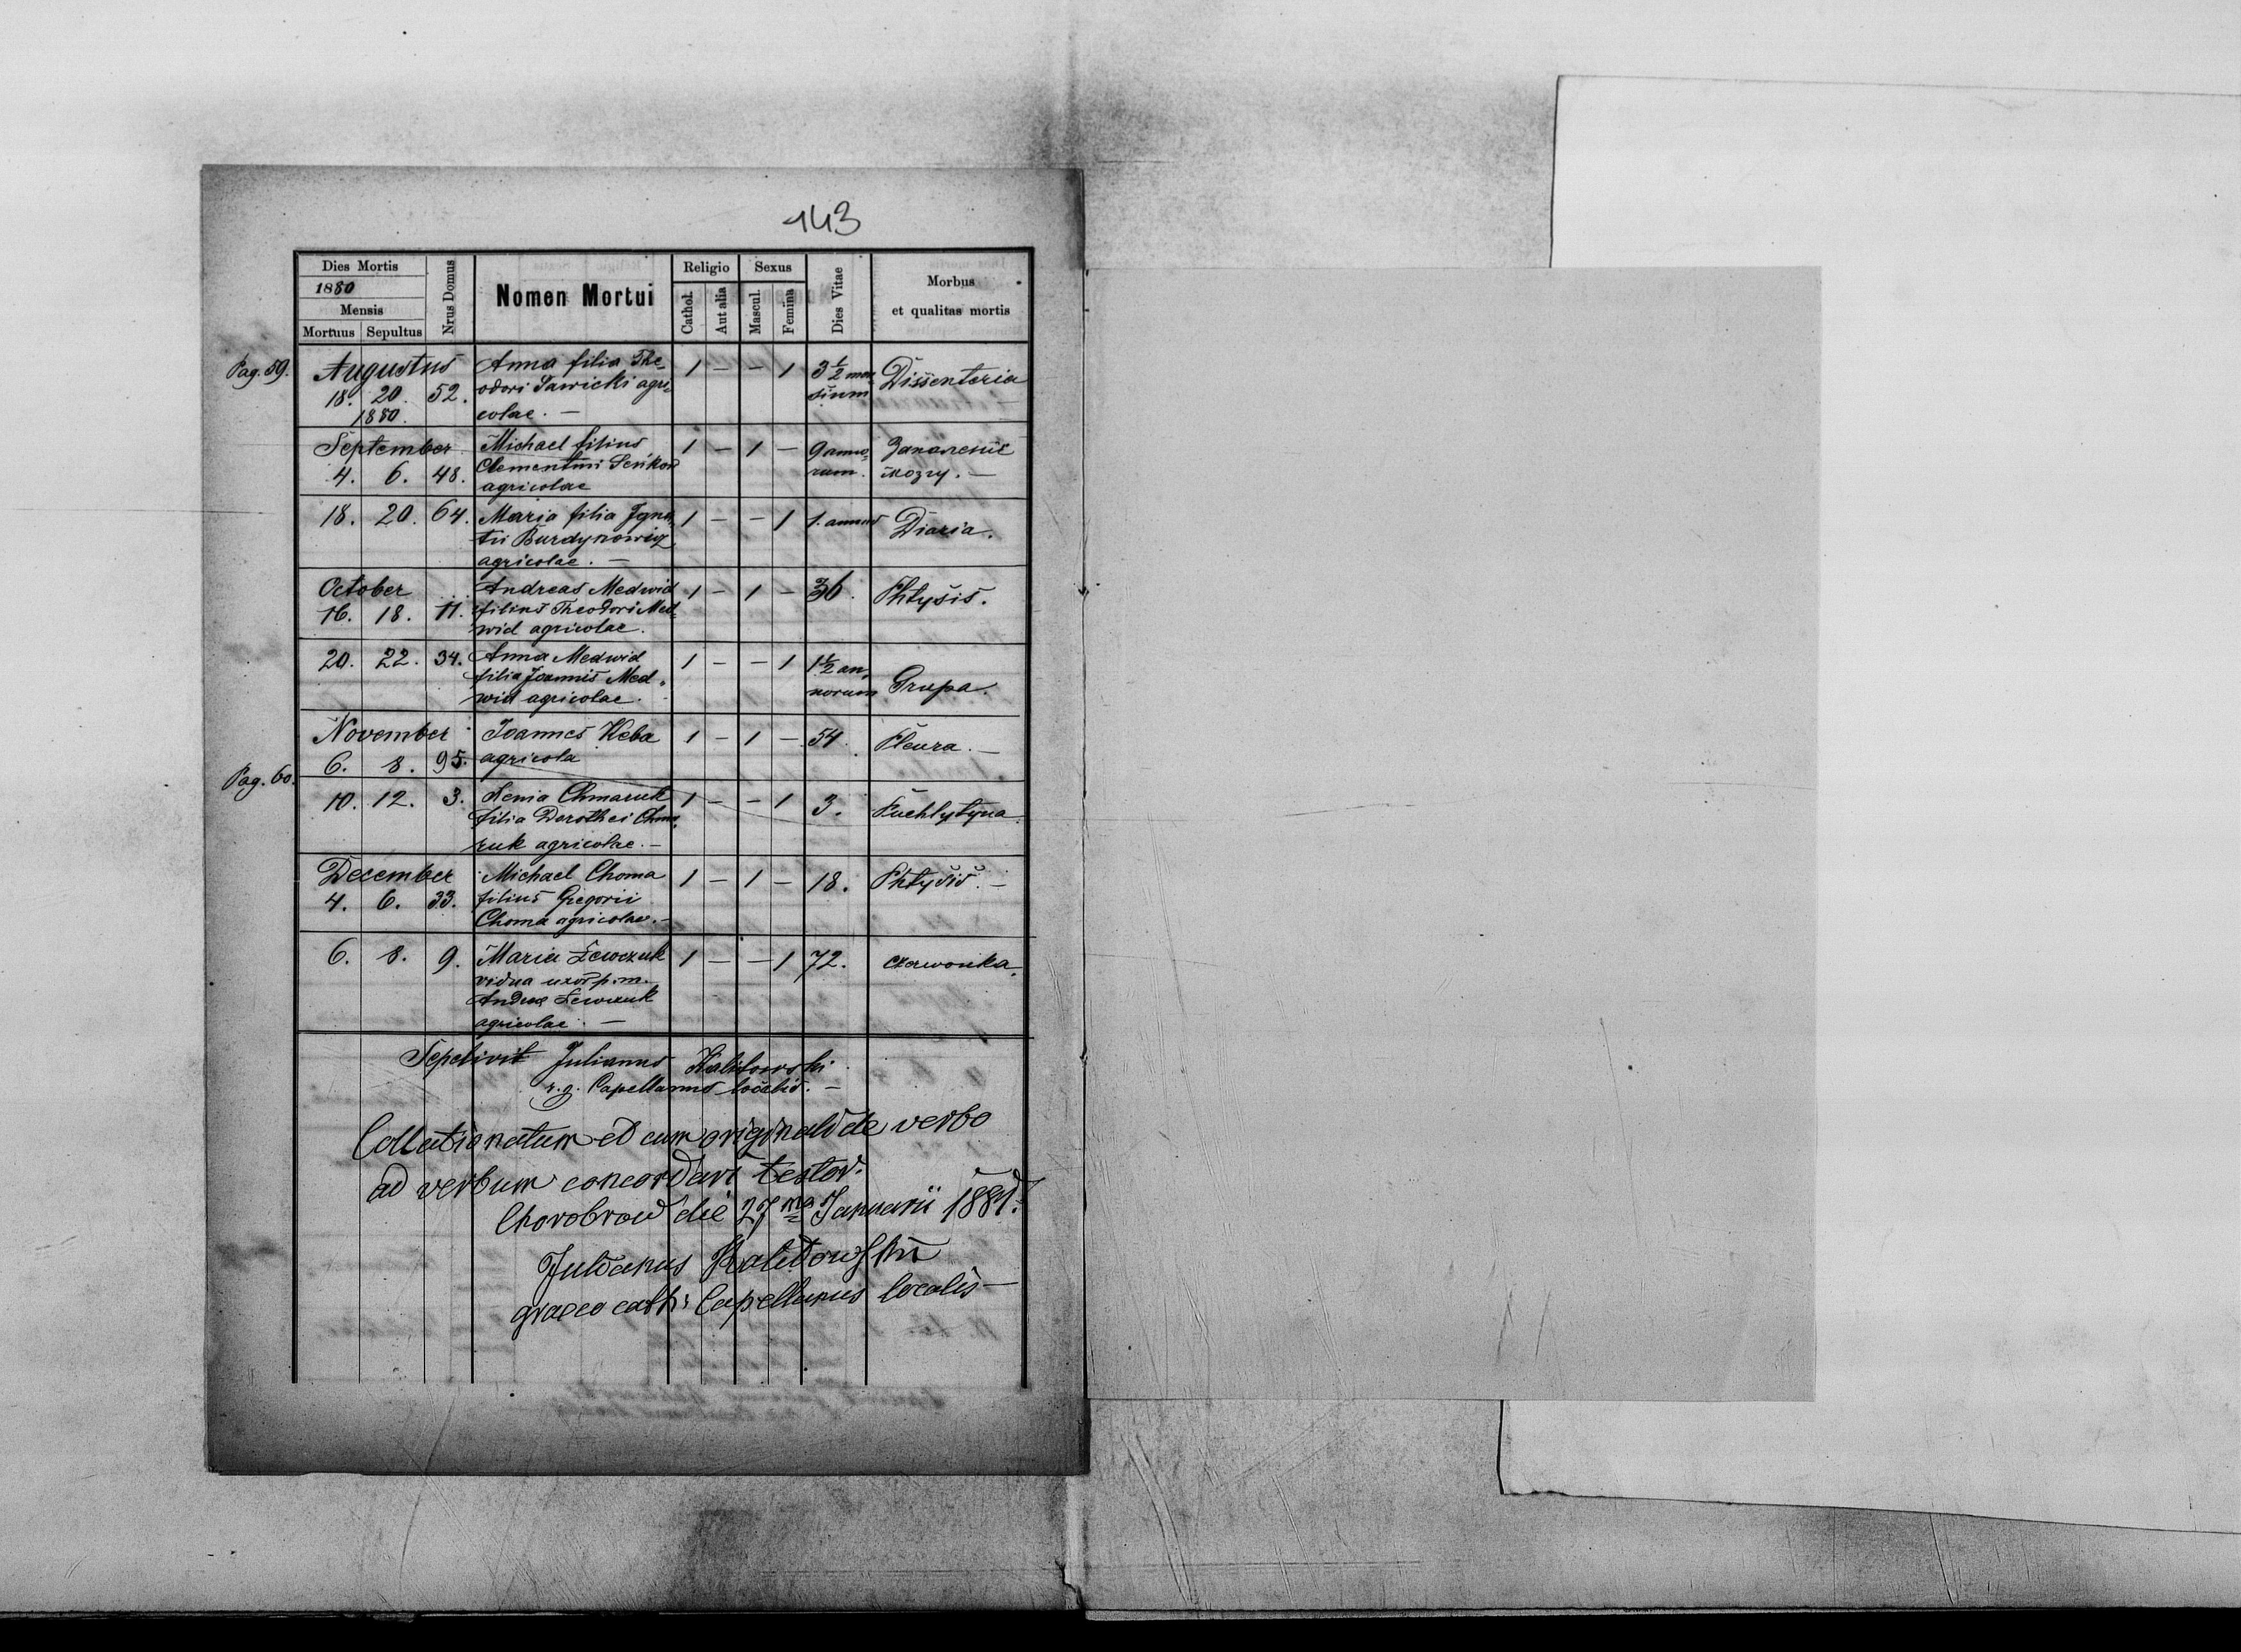 143
Dies Mortis
1880
Mensis
Mortuus Sepultus
Nrus Domus
Nomen Mortui
Religio
Cathol.
Aut alia
Sexus
Mascul.
Femina
Dies Vitae
Morbus
et qualitas mortis
Pag. 59.
Augustus
18. 20. 52.
1880.
Anna filia The-
odori Sawicki agri-
colae. —
1 - - 1
3 1/2 men-
sium
Dissenteria
September
4. 6. 48.
Michael filius
Clementini Seńkow
agricolae
1 - 1 -
9 anno-
rum.
Запаленіє
мозгу. —
18. 20. 64.
Maria filia Igna-
tii Burdynowicz
agricolae. —
1 - - 1
1. annus
Diaria.
October
16. 18. 11.
Andreas Medwid
filius Theodori Med-
wid agricolae.
1 - 1 -
36.
Phtysis.
20. 22. 34.
Anna Medwid
filia Joannis Med-
wid agricolae.
1 - - 1
1 1/2 an-
norum
Grupa.
November
6. 8. 95.
Joannes Heba
agricola
1 - 1 -
54.
Pleura. —
Pag. 60.
10. 12. 3.
Xenia Chmaruk
filia Dorothei Chma-
ruk agricolae. —
1 - - 1
3.
Puchlytyna
December
4. 6. 33.
Michael Choma
filius Gregorii
Choma agricolae. —
1 - 1 -
18.
Phtysis. —
6. 8. 9.
Maria Lewczuk
vidua uxor p. m.
Andreae Lewczuk
agricolae. —
1 - - 1
72.
czerwonka.
Sepelivit Julianus Kalitowski
r. g. Capellanus localis. —
Collationatum et cum originali de verbo
ad verbum concordari testor.
Chorobrow die 27ma Januarii 1881.
Julianus Kalitowski
graeco cath: Capellanus localis —